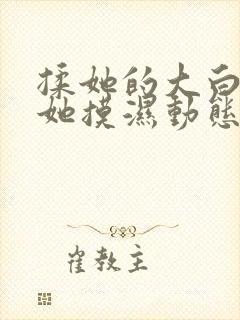 揉她的大白
她摸濕動態
崔教主